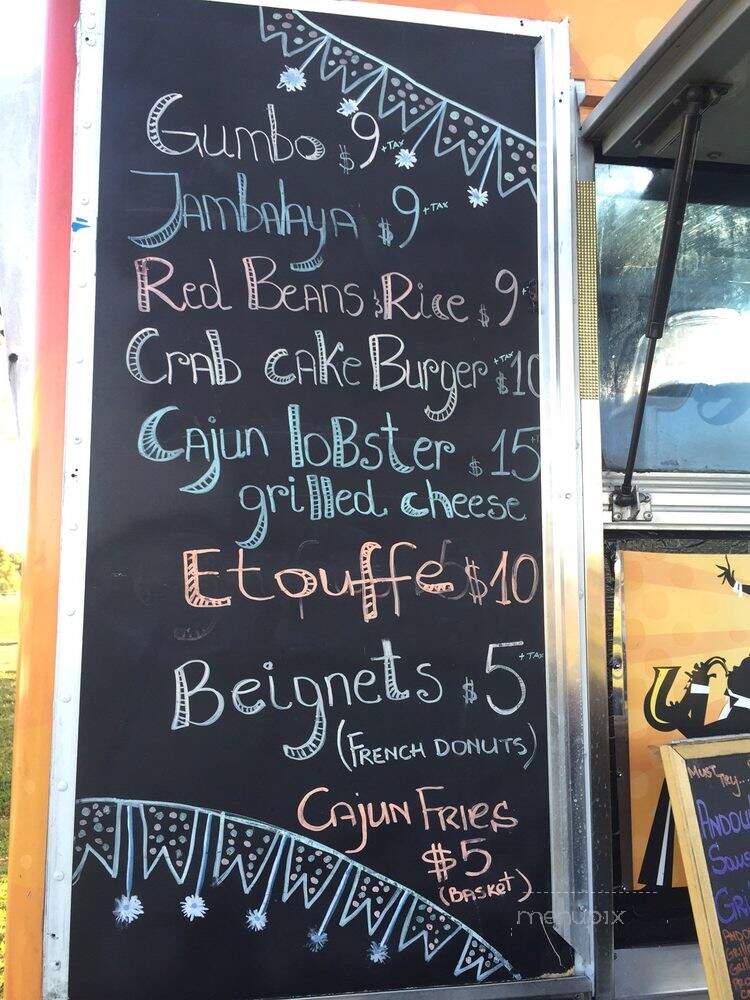 Gumbo $9 +TAX
Jambalaya $9 +TAX
Red Beans & Rice $9
Crab cake Burger $10 +TAX
Cajun lobster $15
grilled cheese
Etouffe $10
Beignets $5 +TAX
(French Donuts)
Cajun Fries
$5
(Basket)
menupix
Must Try..